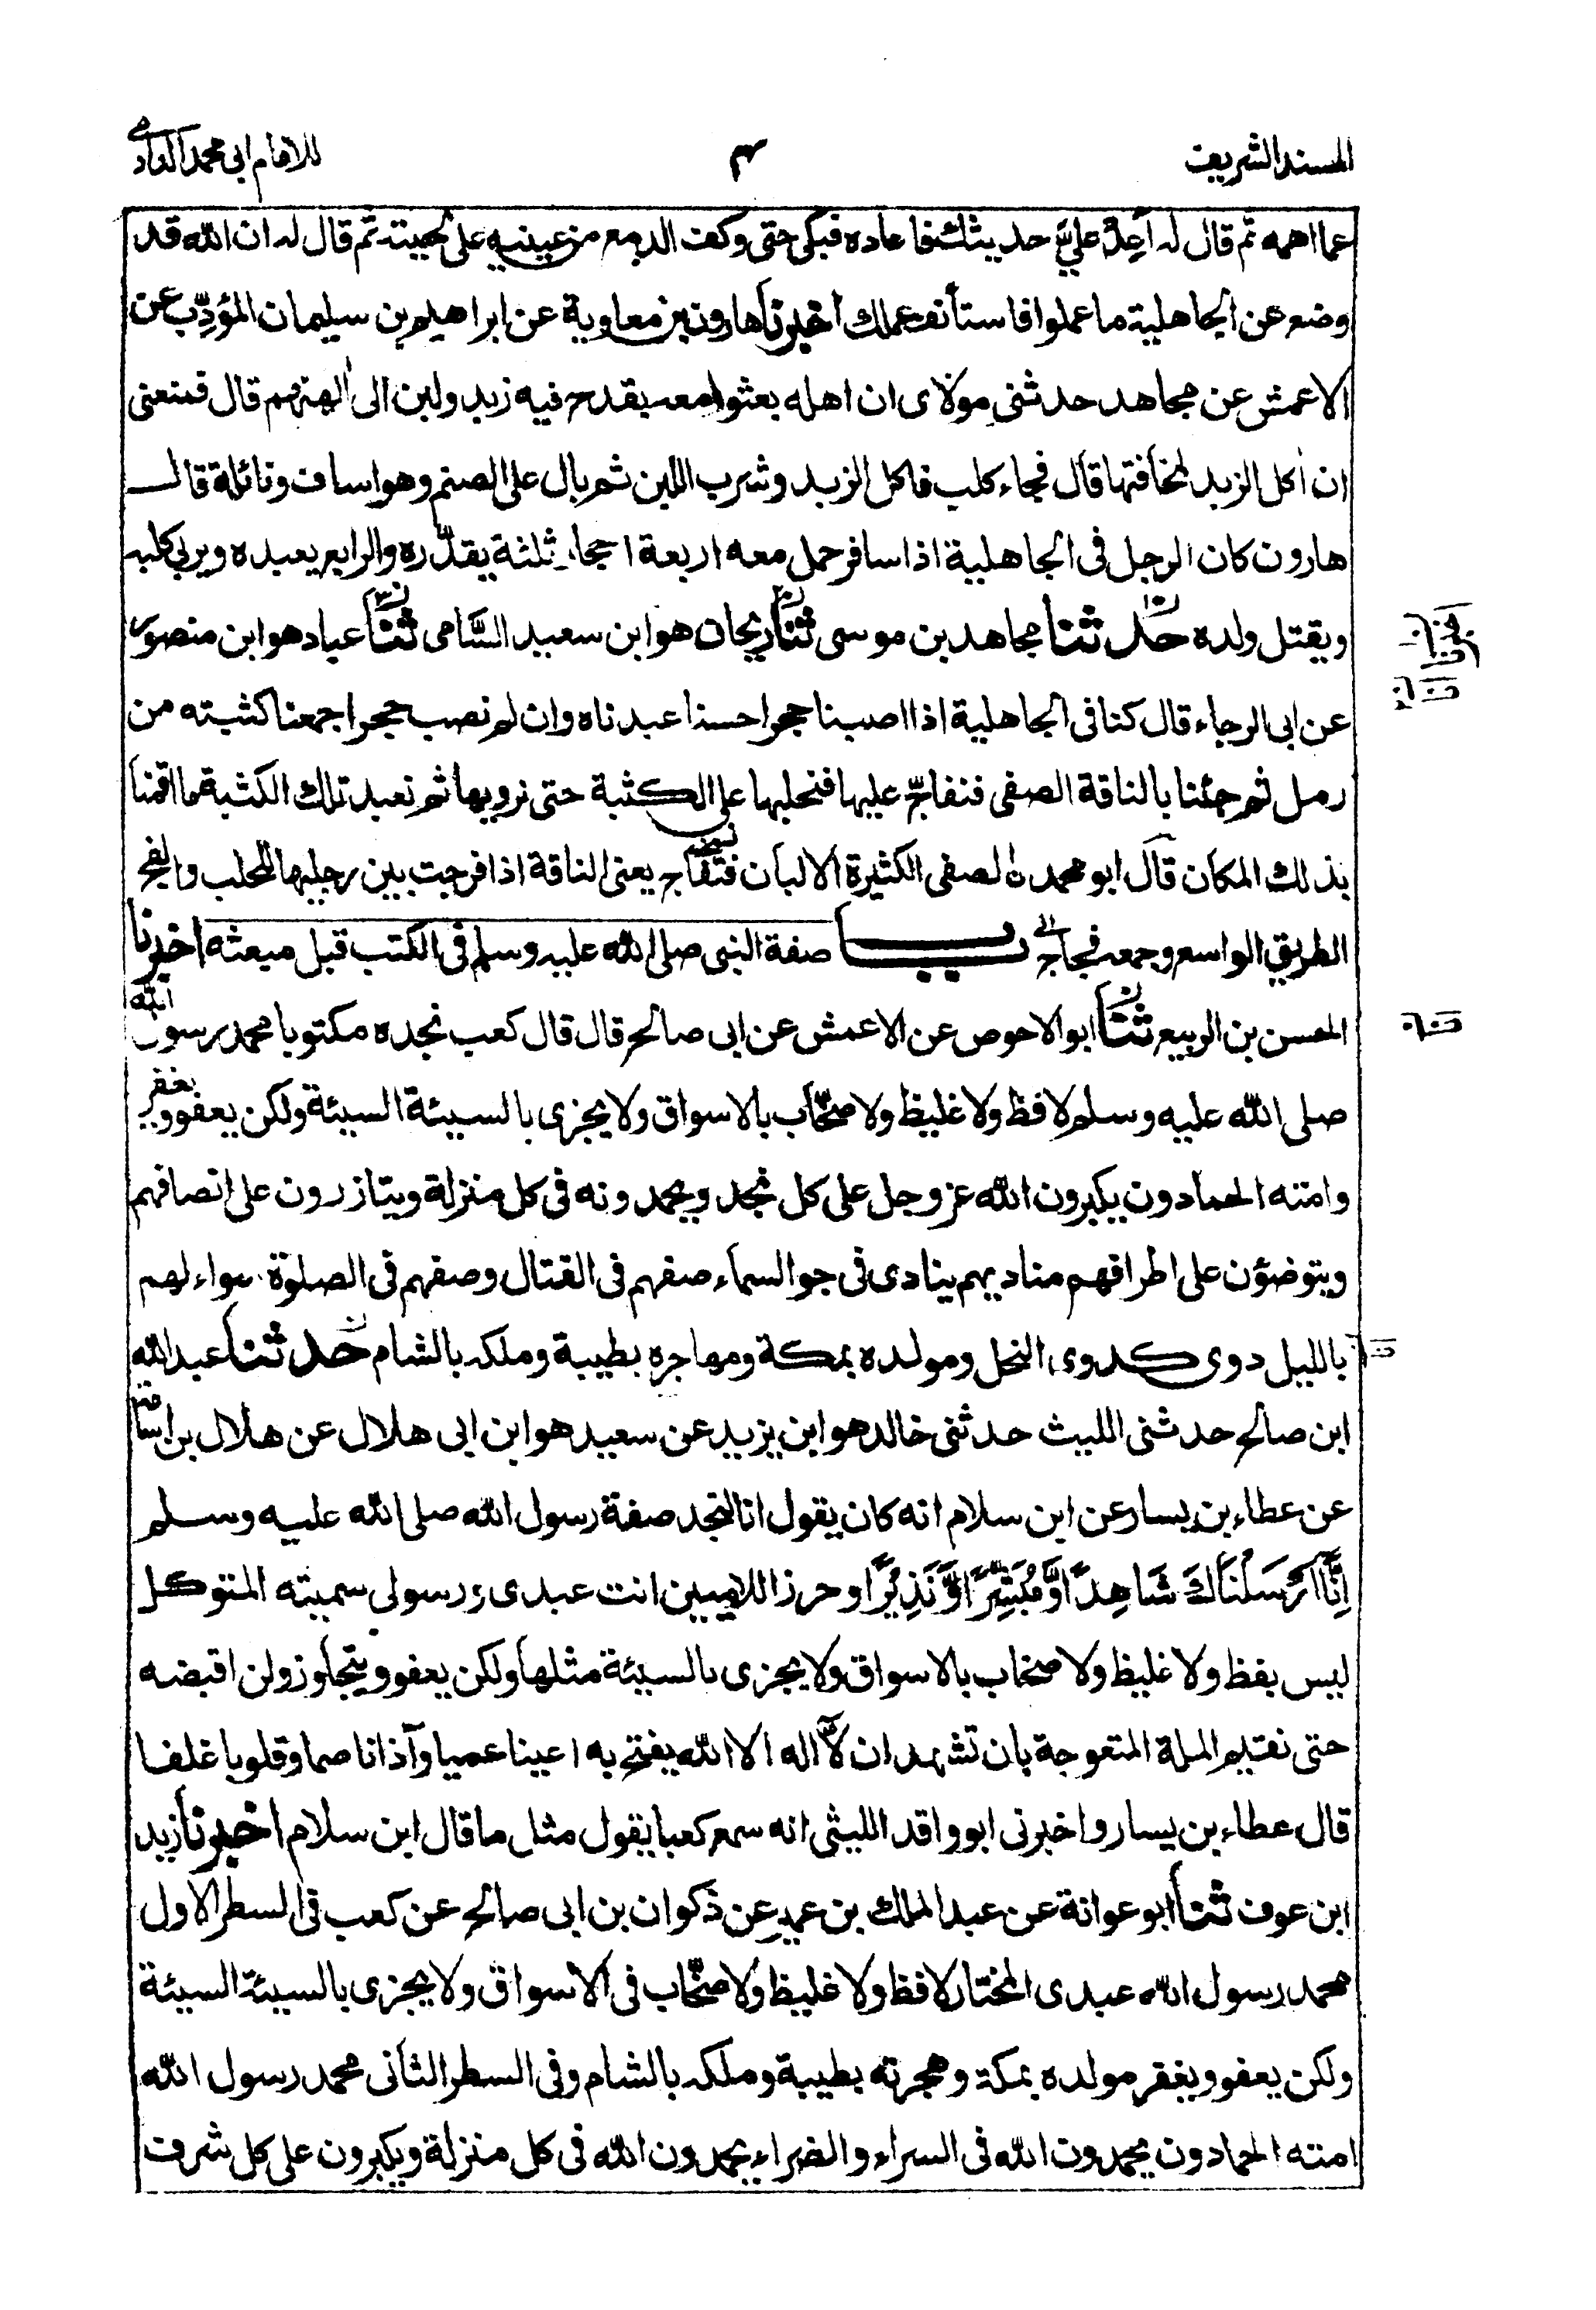 المسند الشريف
۴
للامام ابى محمد الدارمى
عما اهمه ثم قال له اَعِدْ عليَّ حديثك فاعاده فبكى حتى وكف الدمع من عينيه على لحيته ثم قال له ان الله قد
وضع عن الجاهلية ما عملوا فاستأنف عملك اخبرنا هارون بن معاوية عن ابراهيم بن سليمان المؤدِّب عن
الاعمش عن مجاهد حدثنى مولاى ان اهله بعثوا معه بقدح فيه زبد ولبن الى اٰلهتهم قال فمنعنى
ان اٰكل الزبد لمخافتها قال فجاء كلب فاكل الزبد وشرب اللبن ثم بال على الصنم وهو اساف ونائلة قال
هارون كان الرجل فى الجاهلية اذا سافر حمل معه اربعة احجار ثلثة يقدّره والرابع يعبده ويربى كلبه
ويقتل ولده حدثنا مجاهد بن موسى ثنا ريحان هو ابن سعيد السَّامى ثنا عباد هو ابن منصور
عن ابى الرجاء قال كنا فى الجاهلية اذا اصبنا حجرا حسنا عبدناه وان لم نصب حجرا جمعنا كثبته من
رمل ثم جئنا بالناقة الصفى فنفاجّ عليها فنحلبها على الكثبة حتى نرويها ثم نعبد تلك الكثبة ما اقمنا
بذلك المكان قال ابو محمد الصفى الكثيرة الالبان فتفاج يعنى الناقة اذا فرجت بين رجليها للحلب والفج
الطريق الواسع وجمعه فجاج باب صفة النبى صلى الله عليه وسلم فى الكتب قبل مبعثه اخبرنا
الحسن بن الربيع ثنا ابو الاحوص عن الاعمش عن ابى صالح قال قال كعب نجده مكتوبا محمد رسول الله
صلى الله عليه وسلم لا فظ ولا غليظ ولا صخّاب بالاسواق ولا يجزى بالسيئة السيئة ولكن يعفو ويغفر
وامته الحمادون يكبرون الله عز وجل على كل نجد ويحمدونه فى كل منزلة ويتازرون على انصافهم
ويتوضؤن على اطرافهم مناديهم ينادى فى جو السماء صفهم فى القتال وصفهم فى الصلوة سواء لهم
بالليل دوى كدوى النحل ومولده بمكة ومهاجره بطيبة وملكه بالشام حدثنا عبد الله
ابن صالح حدثنى الليث حدثنى خالد هو ابن يزيد عن سعيد هو ابن ابى هلال عن هلال بن اسامة
عن عطاء بن يسار عن ابن سلام انه كان يقول انا لنجد صفة رسول الله صلى الله عليه وسلم
اِنَّا اَرْسَلْنَاكَ شَاهِدًا وَّمُبَشِّرًا وَّنَذِيْرًا وحرزا للاميين انت عبدى ورسولى سميته المتوكل
ليس بفظ ولا غليظ ولا صخاب بالاسواق ولا يجزى بالسيئة مثلها ولكن يعفو ويتجاوز ولن اقبضه
حتى نقيم الملة المتعوجة بان تشهد ان لا اله الا الله يفتح به اعينا عميا وآذانا صما وقلوبا غلفا
قال عطاء بن يسار واخبرنى ابو واقد الليثى انه سمع كعبا يقول مثل ما قال ابن سلام اخبرنا زيد
ابن عوف ثنا ابو عوانة عن عبد الملك بن عمير عن ذكوان بن ابى صالح عن كعب فى السطر الاول
محمد رسول الله عبدى المختار لا فظ ولا غليظ ولا صخّاب فى الاسواق ولا يجزى بالسيئة السيئة
ولكن يعفو ويغفر مولده بمكة وهجرته بطيبة وملكه بالشام وفى السطر الثانى محمد رسول الله
امته الحمادون يحمدون الله فى السراء والضراء يحمدون الله فى كل منزلة ويكبرون على كل شرف